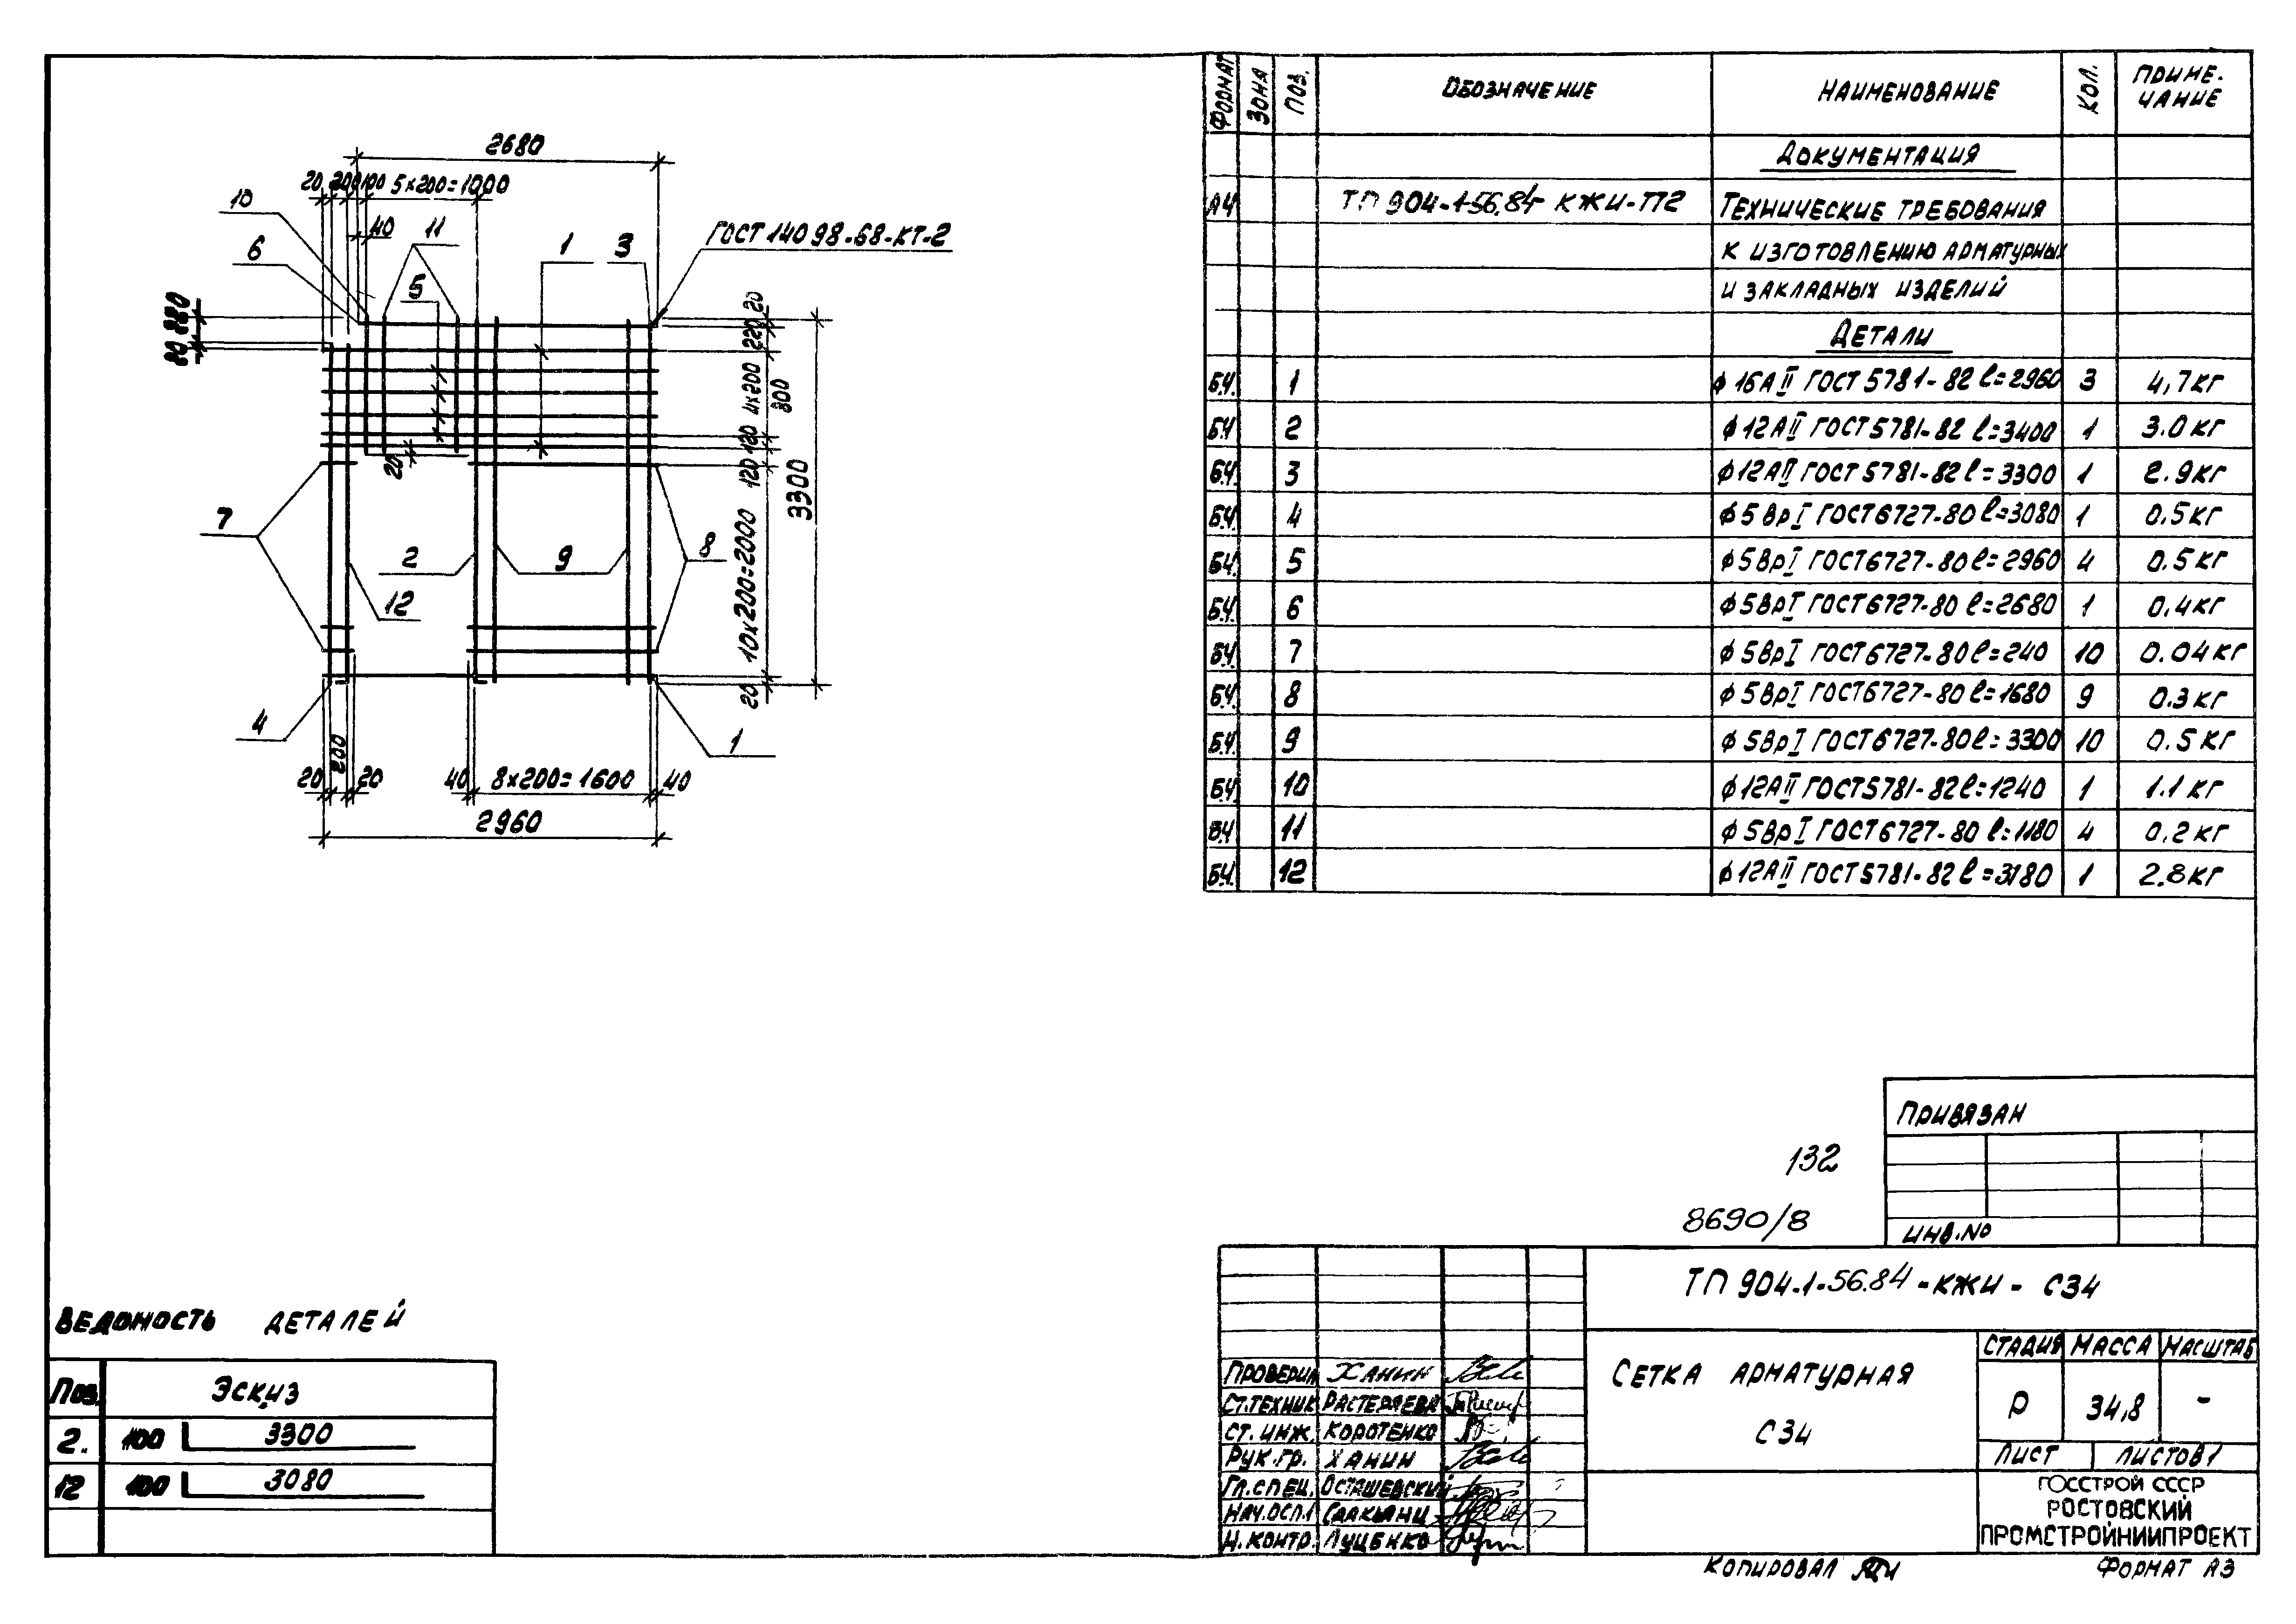 2680
20 200 100 5×200=1000
10
40
11
6
1 3
ГОСТ 14098-68-КТ-2
5
20 220
20
220
4×200
800
120
120
20
3300
10×200=2000
20
7
2
9
8
12
4
1
200
20 20 40 8×200=1600 40
2960
ФОРМАТ ЗОНА ПОЗ. ОБОЗНАЧЕНИЕ НАИМЕНОВАНИЕ КОЛ. ПРИМЕ-
ЧАНИЕ
ДОКУМЕНТАЦИЯ
А4 ТП 904-1-56.84-КЖИ-ТТ2 ТЕХНИЧЕСКИЕ ТРЕБОВАНИЯ
К ИЗГОТОВЛЕНИЮ АРМАТУРНЫХ
И ЗАКЛАДНЫХ ИЗДЕЛИЙ
ДЕТАЛИ
БЧ. 1 ф16АII ГОСТ 5781-82 ℓ=2960 3 4,7кг
БЧ 2 ф12АII ГОСТ 5781-82 ℓ=3400 1 3.0кг
БЧ. 3 ф12АII ГОСТ 5781-82 ℓ=3300 1 2.9кг
БЧ. 4 ф5ВрI ГОСТ 6727-80 ℓ=3080 1 0.5кг
БЧ. 5 ф5ВрI ГОСТ 6727-80 ℓ=2960 4 0.5кг
БЧ. 6 ф5ВрI ГОСТ 6727-80 ℓ=2680 1 0.4кг
БЧ. 7 ф5ВрI ГОСТ 6727-80 ℓ=240 10 0.04кг
БЧ. 8 ф5ВрI ГОСТ 6727-80 ℓ=1680 9 0.3кг
БЧ. 9 ф5ВрI ГОСТ 6727-80 ℓ=3300 10 0.5кг
БЧ. 10 ф12АII ГОСТ 5781-82 ℓ=1240 1 1.1кг
БЧ 11 ф5ВрI ГОСТ 6727-80 ℓ=1180 4 0.2кг
БЧ. 12 ф12АII ГОСТ 5781-82 ℓ=3180 1 2.8кг
ПРИВЯЗАН
132
8690/8
ИНВ.№
ТП 904-1-56.84-КЖИ-С34
СЕТКА АРМАТУРНАЯ
С34
СТАДИЯ МАССА МАСШТАБ
Р 34,8 -
ЛИСТ ЛИСТОВ 1
ГОССТРОЙ СССР
РОСТОВСКИЙ
ПРОМСТРОЙНИИПРОЕКТ
ПРОВЕРИЛ ХАНИН
СТ.ТЕХНИК РАСТЕРЯЕВА
СТ. ИНЖ. КОРОТЕНКО
РУК.ГР. ХАНИН
ГЛ.СПЕЦ. ОСТАШЕВСКИЙ
НАЧ.ОСП.1 СААКЬЯНЦ
Н.КОНТР. ЛУЦЕНКО
ВЕДОМОСТЬ ДЕТАЛЕЙ
Поз. Эскиз
2. 100 3300
12 100 3080
КОПИРОВАЛ
ФОРМАТ А3